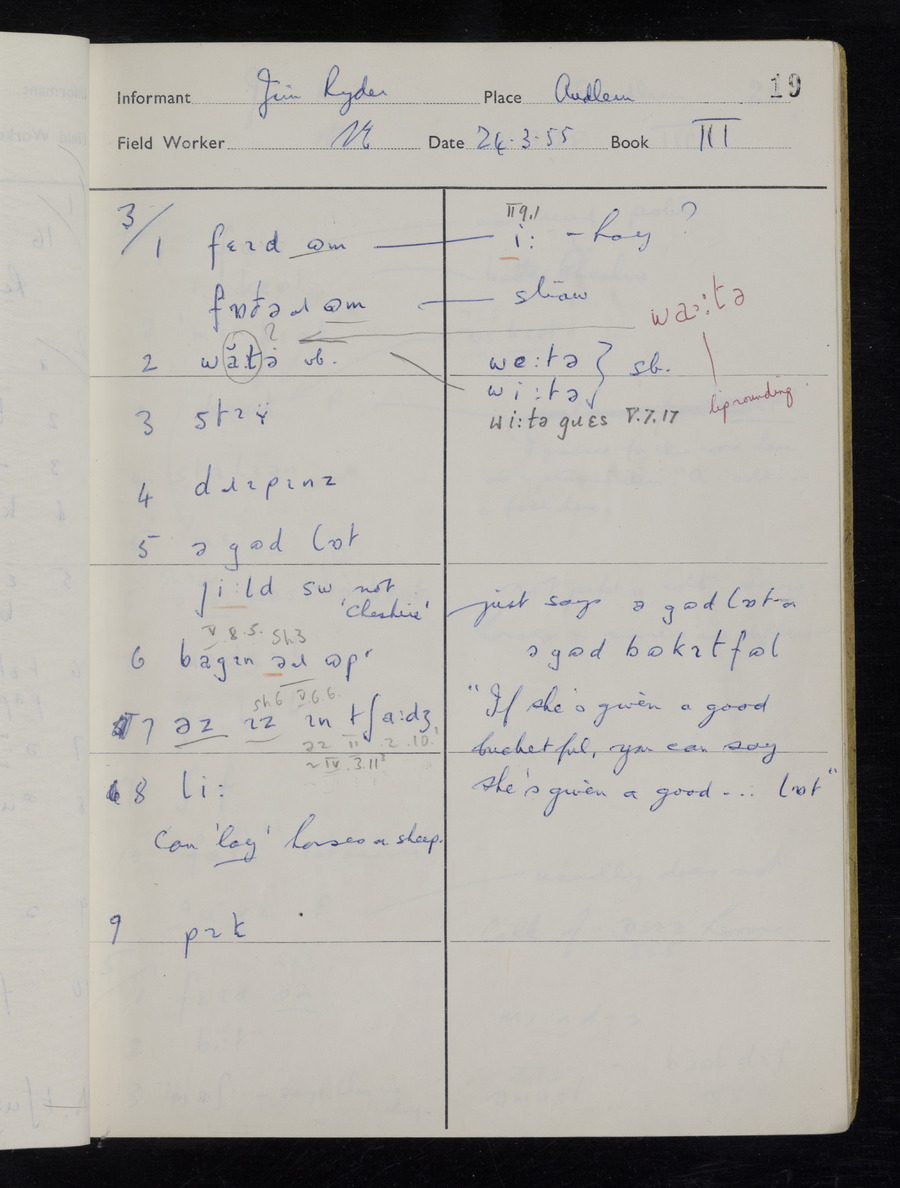 Informant Jim Ryder Place Audlem 19
Field Worker Date 24·3·55 Book III
3/
1 fɛɪd ʊm — i: - hay ?
II 9.1
ʊm — straw
waː:tə
2 vb.
we:tə } sb.
wi:tə
lip rounding
wi:tə gues V.7.17
3
4 dɹɪpɪnz
5 ə gʊd lɒt
ji:ld sw not
'Cheshire'
just says ə gʊd lɒt ɒ
V.8.5. Sh3
6 bagɪn əɹ ʊp
ə gʊd bʊkɪtfʊl
sh6 V.6.6.
7 əz ɪz ɪn tʃa:dʒ
əz II .2.10.
~ IV.3.11
"If she's given a good
bucketful, you can say
she's given a good ... lɒt"
8 li:
Can 'lay' horses or sheep.
9 pɪk